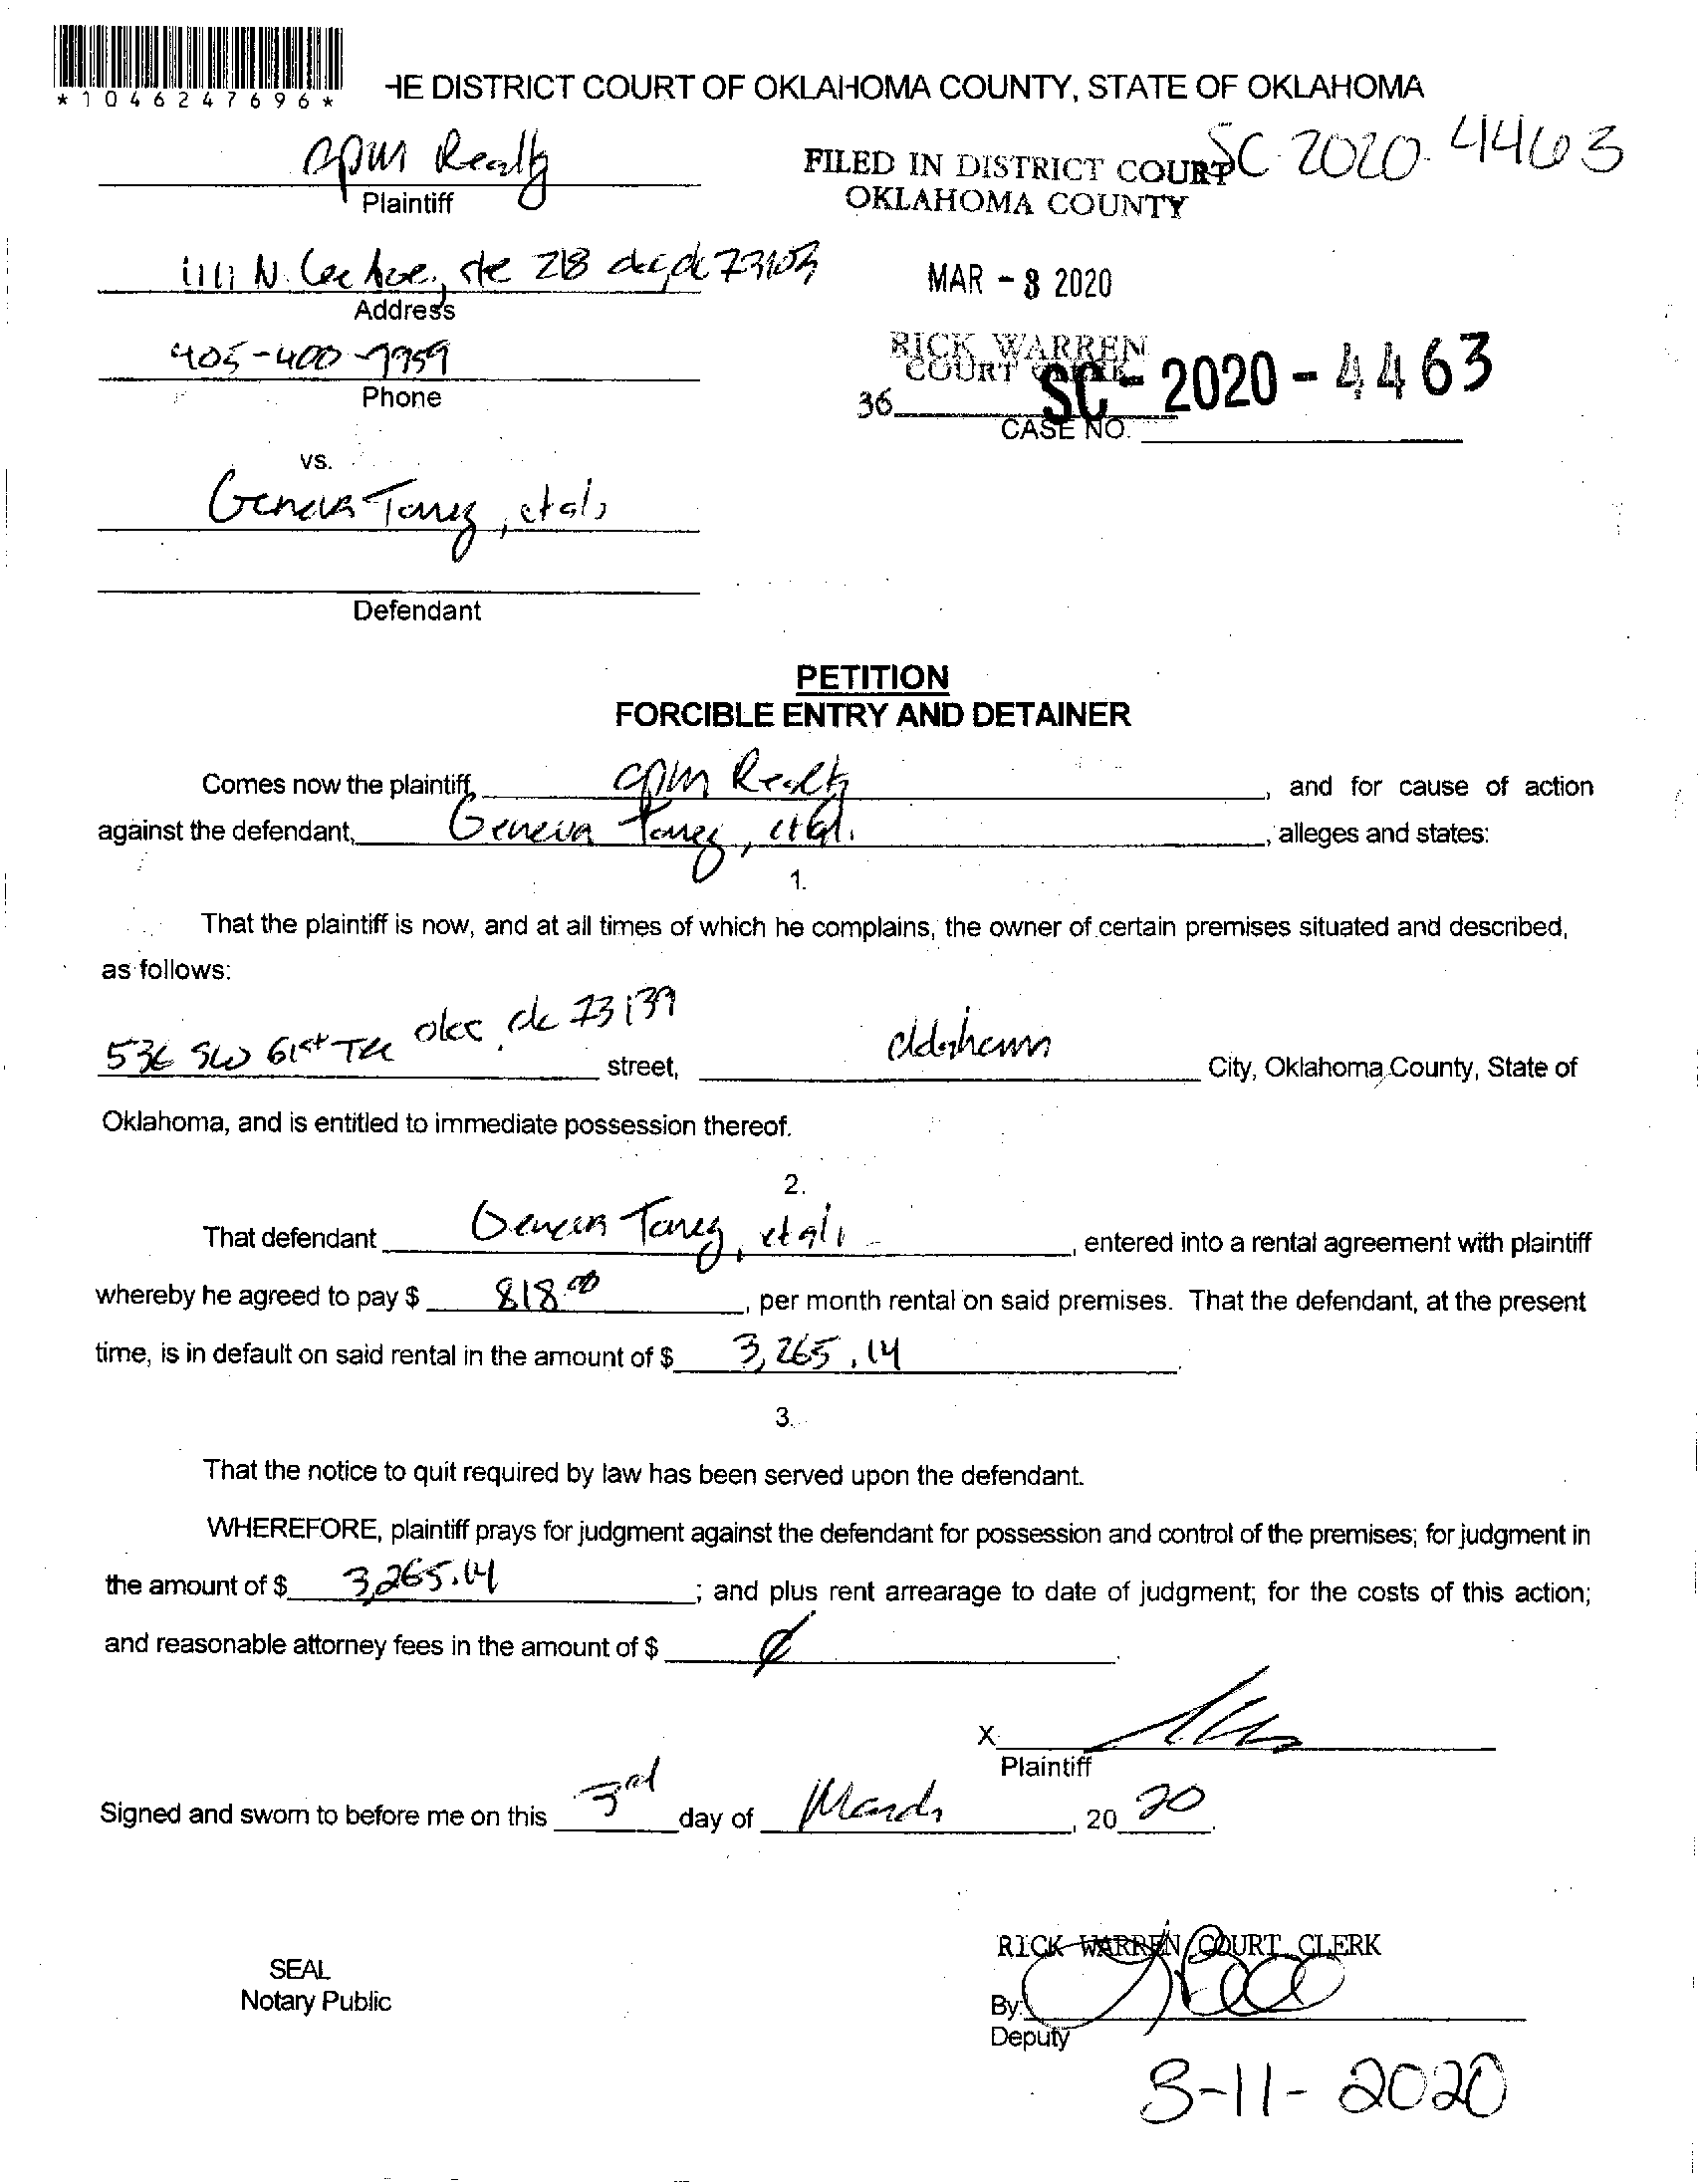 *1046247696*
HE DISTRICT COURT OF OKLAHOMA COUNTY, STATE OF OKLAHOMA
cpm Realty
Plaintiff
FILED IN DISTRICT COURT
OKLAHOMA COUNTY
SC 2020-4463
1111 N. Lee Ave., ste 218 okc, ok 73103
Address
MAR - 3 2020
405-400-7959
Phone
RICK WARREN
COURT CLERK
36
SC - 2020 - 4463
CASE NO.
vs.
Geneva et al,
Defendant
PETITION
FORCIBLE ENTRY AND DETAINER
Comes now the plaintiff, cpm Realty, and for cause of action
against the defendant, Geneva et al., alleges and states:
1.
That the plaintiff is now, and at all times of which he complains, the owner of certain premises situated and described,
as follows:
536 SW 61st Ter okc, ok 73139 street, Oklahoma City, Oklahoma County, State of
Oklahoma, and is entitled to immediate possession thereof.
2.
That defendant Geneva et al, entered into a rental agreement with plaintiff
whereby he agreed to pay $ 818.00, per month rental on said premises. That the defendant, at the present
time, is in default on said rental in the amount of $ 3,265.14.
3.
That the notice to quit required by law has been served upon the defendant.
WHEREFORE, plaintiff prays for judgment against the defendant for possession and control of the premises; for judgment in
the amount of $ 3,265.14; and plus rent arrearage to date of judgment; for the costs of this action;
and reasonable attorney fees in the amount of $
X
Plaintiff
Signed and sworn to before me on this 3rd day of March, 20 20.
RICK WARREN COURT CLERK
SEAL
Notary Public
By:
Deputy
3-11-2020